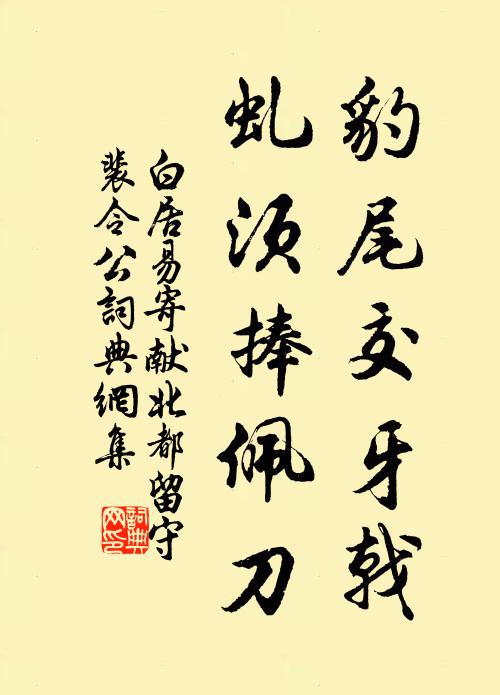 豹尾交牙戟
虬须捧佩刀
白居易寄献北都留守
裴令公詞典網集
詞典
网印